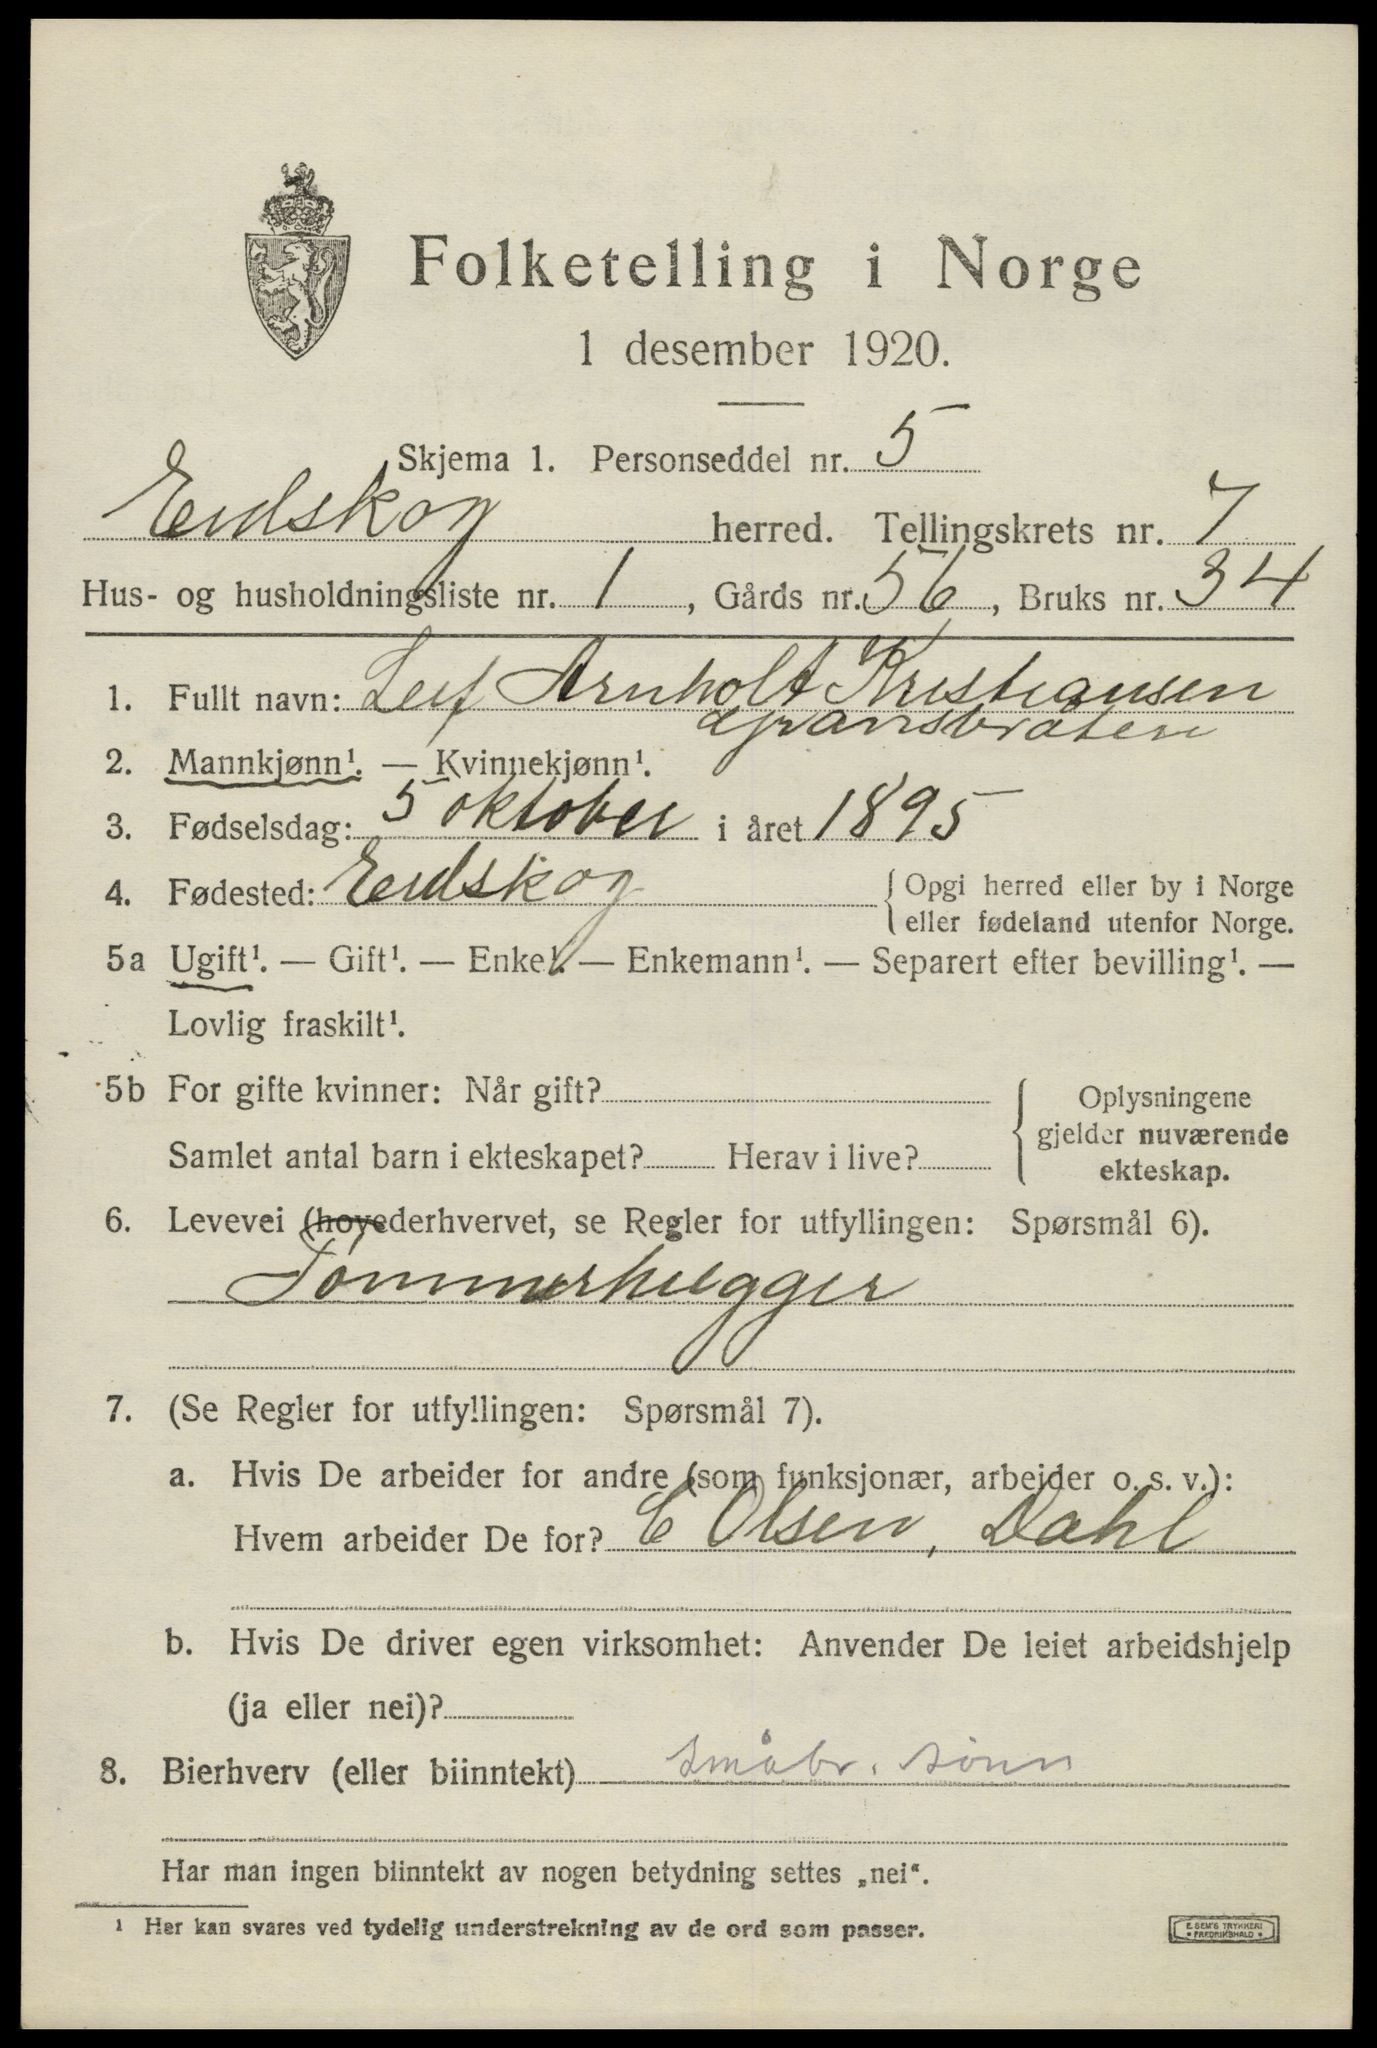 Folketelling i Norge
1 desember 1920.
Skjema 1. Personseddel nr. 5
Eidskog herred. Tellingskrets nr. 7
Hus- og husholdningsliste nr. 1, Gårds nr. 56, Bruks nr. 34
1. Fullt navn: Leif Arnholt Kristiansen
Gransbråten
2. Mannkjønn¹. — Kvinnekjønn¹.
3. Fødselsdag: 5 oktober i året 1895
4. Fødested: Eidskog { Opgi herred eller by i Norge
eller fødeland utenfor Norge.
5a Ugift¹. — Gift¹. — Enke¹. — Enkemann¹. — Separert efter bevilling¹. —
Lovlig fraskilt¹.
5b For gifte kvinner: Når gift?
Samlet antal barn i ekteskapet? Herav i live?
Oplysningene
gjelder nuværende
ekteskap.
6. Levevei (hovederhvervet, se Regler for utfyllingen: Spørsmål 6).
Tømmerhugger
7. (Se Regler for utfyllingen: Spørsmål 7).
a. Hvis De arbeider for andre (som funksjonær, arbeider o. s. v.):
Hvem arbeider De for? C Olsen, Dahl
b. Hvis De driver egen virksomhet: Anvender De leiet arbeidshjelp
(ja eller nei)?
8. Bierhverv (eller biinntekt) Småbr. sønn
Har man ingen biinntekt av nogen betydning settes „nei“.
¹ Her kan svares ved tydelig understrekning av de ord som passer.
E. SEM'S TRYKKERI
FREDRIKSHALD